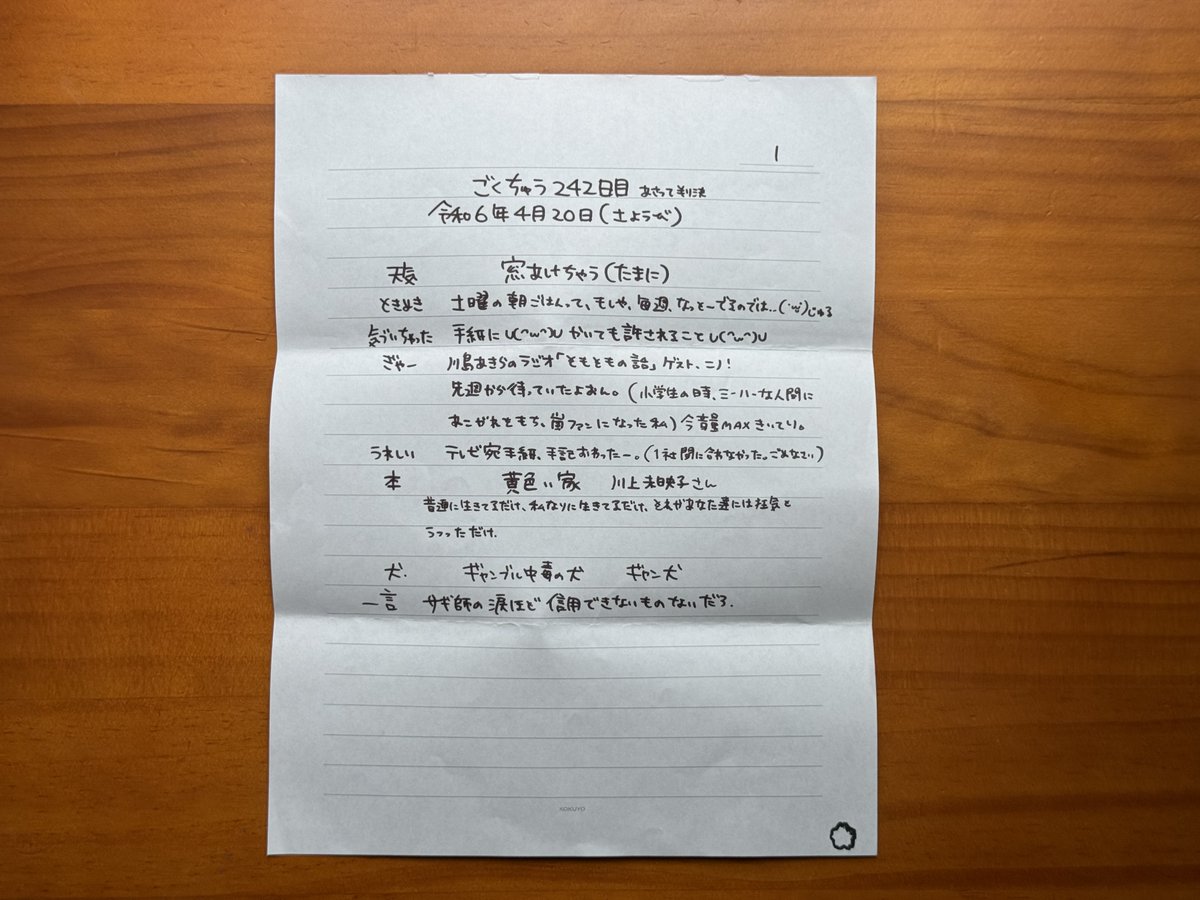 1
ごくちゅう242日目 あさって判決
令和6年4月20日(土ようび)
天気 窓あけちゃう(たまに)
ときめき 土曜の朝ごはんって、もしや、毎週、なっとーでるのでは..(´ω`)じゅる
気づいちゃった 手紙にU(^ω^)U かいても許されること U(^ω^)U
ぎゃー 川島あきらのラジオ「ともともの詰」ゲスト、ニノ!
先週から待っていたよおん。(小学生の時、ミーハーな人間に
あこがれをもち、嵐ファンになった私)今音量MAXきいてり。
うれしい テレビ宛手紙、手記おわったー。(1社間に合わなかった。ごめなてい)
本 黄色い家 川上未映子さん
普通に生きてるだけ、私なりに生きてるだけ、それがあなた達には狂気と
うつっただけ.
犬. ギャンブル中毒の犬 ギャン犬
一言 サギ師の涙ほど信用できないものないだろ.
KOKUYO